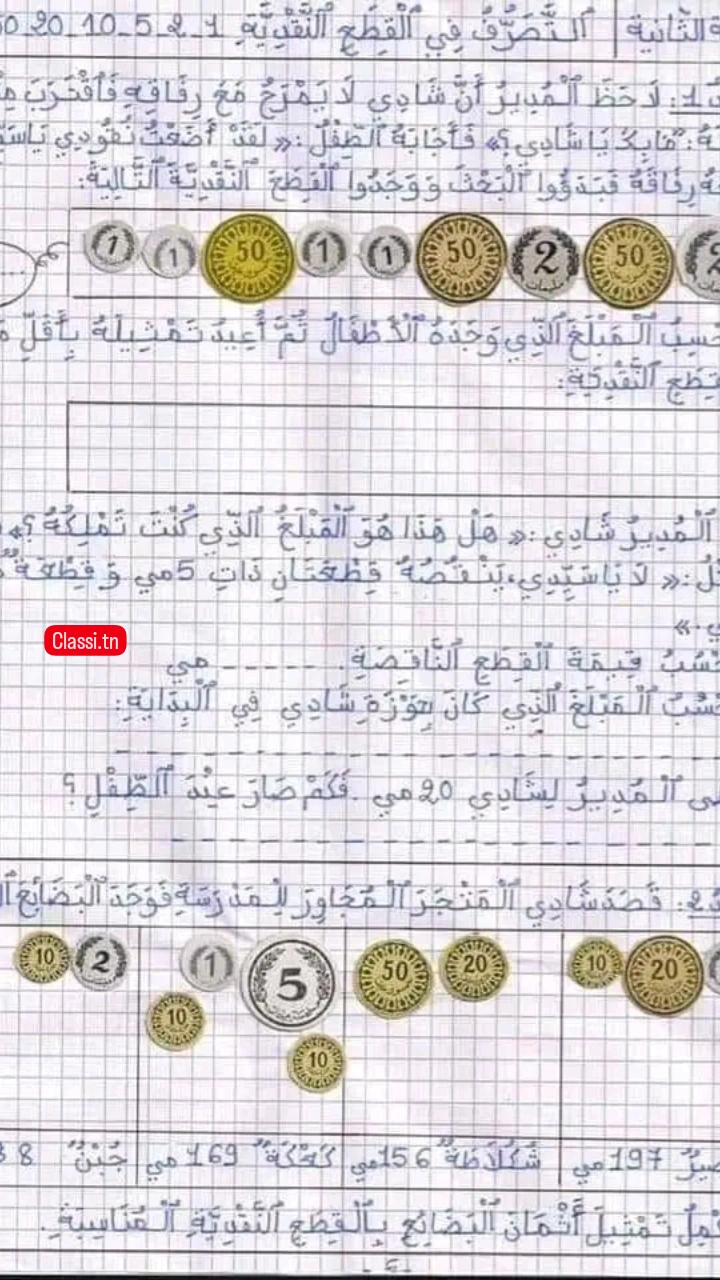 الثانية | اَلتَّصَرُّفُ فِي الْقِطَعِ النَّقْدِيَّةِ 1_2_5_10_20_
1: لَاحَظَ الْمُدِيرُ أَنَّ شَادِي لَا يَمْرَحُ مَعَ رِفَاقِهِ فَاقْتَرَبَ
"مَابِكَ يَا شَادِي؟» فَأَجَابَهُ الطِّفْلُ :« لَقَدْ أَضَعْتُ نُقُودِي
رِفَاقُهُ فَبَدَؤُوا الْبَحْثَ وَوَجَدُوا الْقِطَعَ النَّقْدِيَّةَ التَّالِيَةَ:
1 1 50 1 1 50 2 50 2
الْمَبْلَغَ الَّذِي وَجَدَهُ الْأَطْفَالُ ثُمَّ أُعِيدُ تَمْثِيلَهُ بِأَقَلِّ
النَّقْدِيَّةِ:
الْمُدِيرُ شَادِي :« هَلْ هَذَا هُوَ الْمَبْلَغُ الَّذِي كُنْتَ تَمْلِكُهُ ؟»
:« لَا يَا سَيِّدِي، يَنْقُصُهُ قِطْعَتَانِ ذَاتِ 5مي وَ قِطْعَةٌ
Classi.tn
قِيمَةَ الْقِطَعِ النَّاقِصَةِ. ------ مي
الْمَبْلَغَ الَّذِي كَانَ بِحَوْزَةِ شَادِي فِي الْبِدَايَةِ:
الْمُدِيرُ لِشَادِي 20مي .فَكَمْ صَارَ عِنْدَ الطِّفْلِ ؟
2: قَصَدَ شَادِي الْمَتْجَرَ الْمُجَاوِرَ لِلْمَدْرَسَةِ فَوَجَدَ الْبَضَائِعَ
10 20 | 50 20 | 5 1 10 10 | 2 10
197مي | شُكُلَاطَةٌ 156مي | كَعْكَةٌ 169 مي | جُبْنٌ 8
تَمْثِيلَ أَثْمَانَ الْبَضَائِعِ بِالْقِطَعِ النَّقْدِيَّةِ الْمُنَاسِبَةِ.